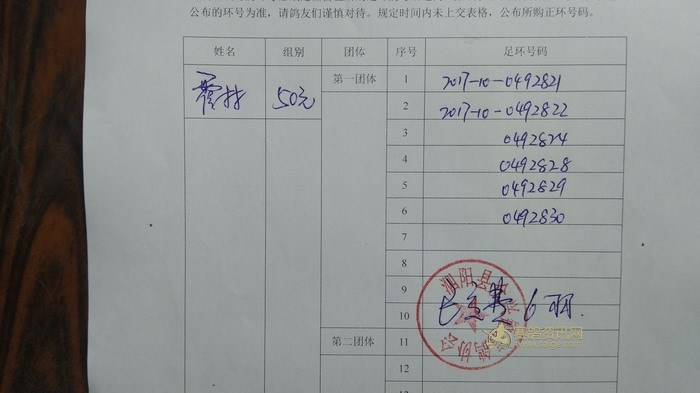 公布的环号为准，请鸽友们谨慎对待。规定时间内未上交表格，公布所购正环号码。
姓名 组别 团体 序号 足环号码
50元 第一团体 1 2017-10-0492821
2 2017-10-0492822
3 0492824
4 0492828
5 0492829
6 0492830
7
8
9
10 6羽.
第二团体 11
12
泗阳县
鸽协会